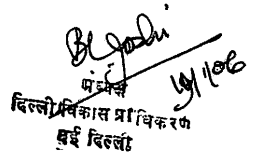 B L Joshi
19/1/06
दिल्ली विकास प्राधिकरण
नई दिल्ली